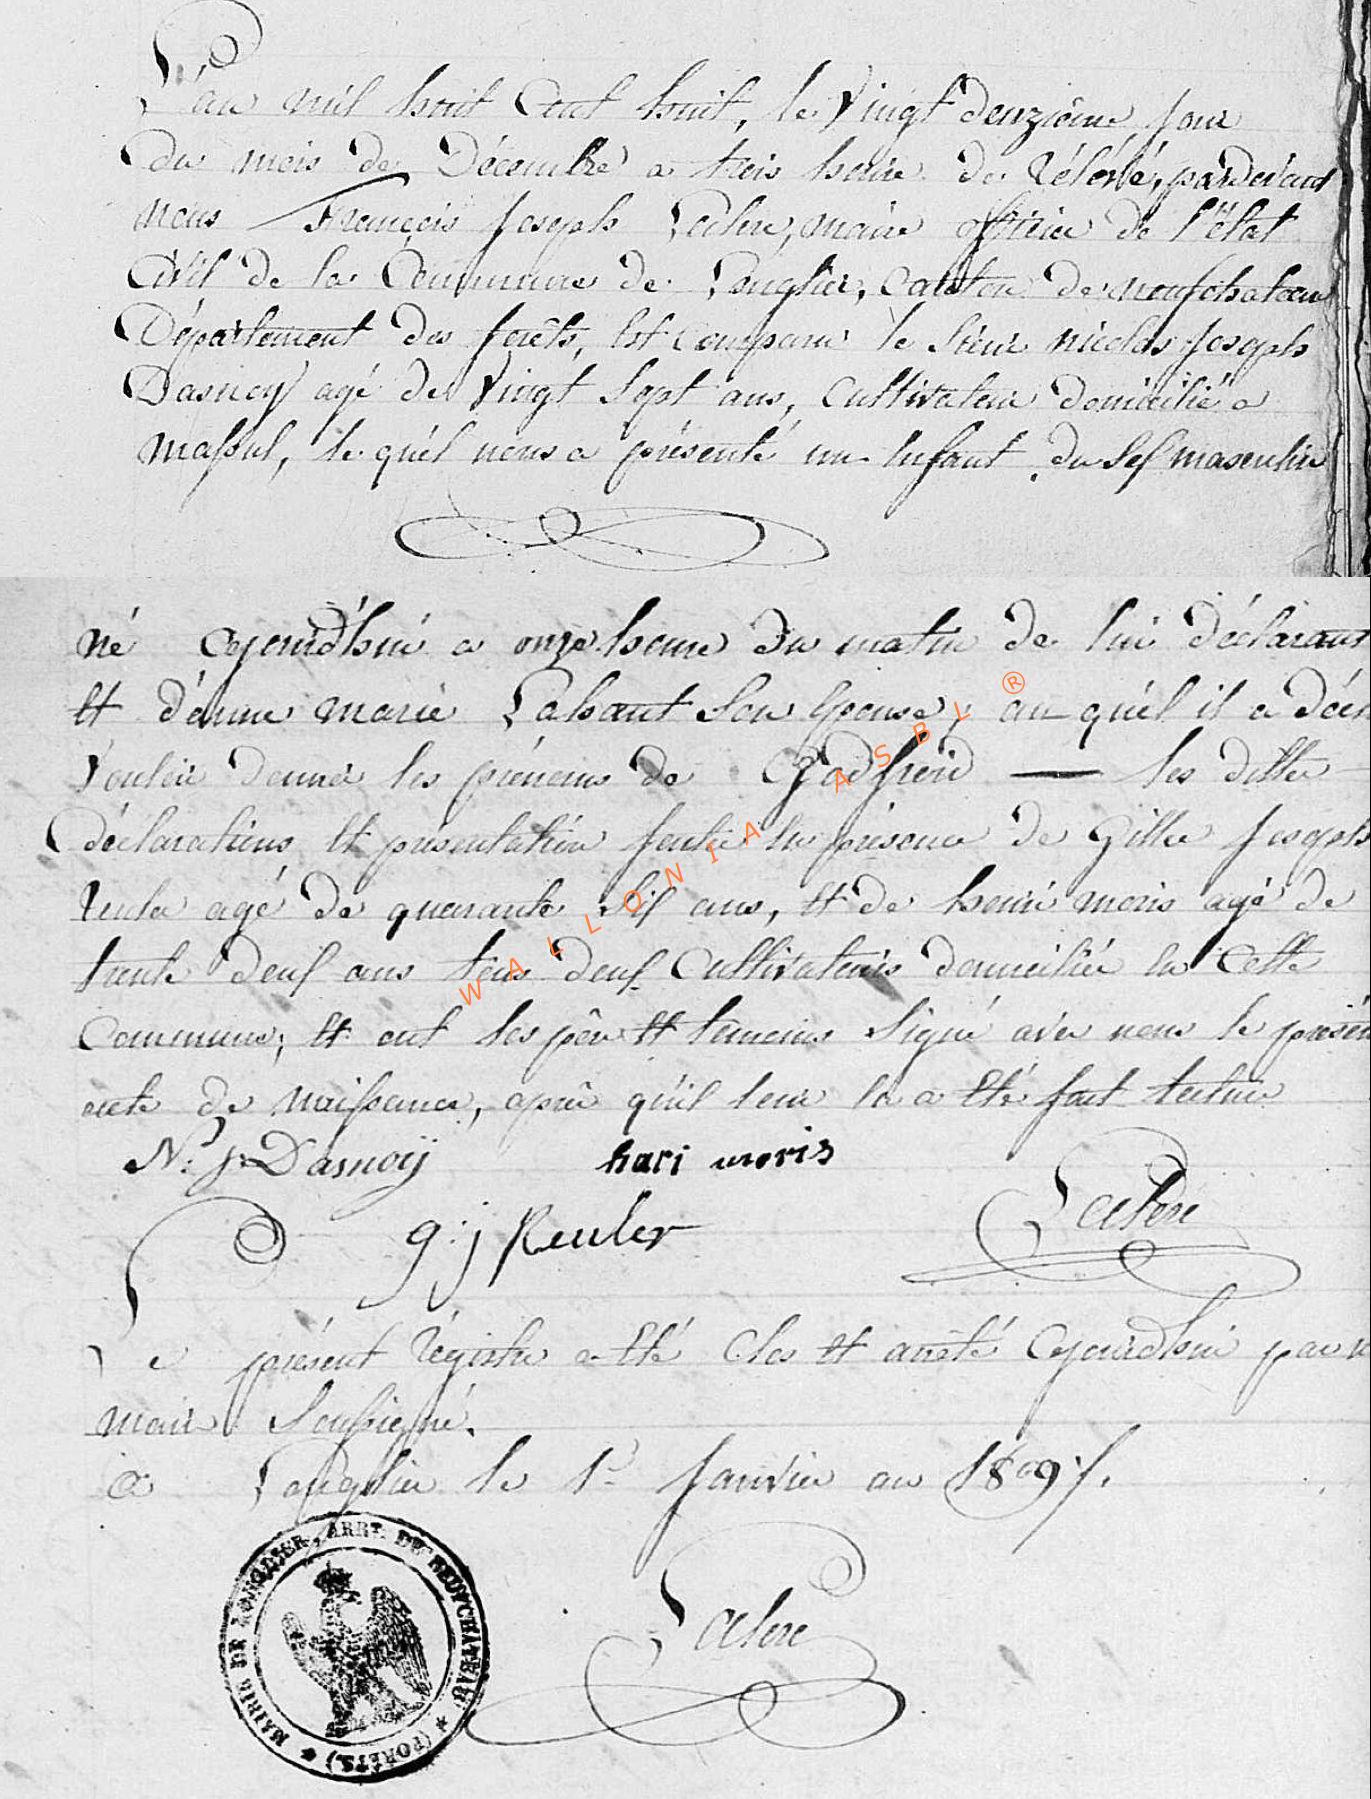 L'an mil huit Cent huit, le Vingt deuzième jour
du mois de Décembre a trois heure de rélévé, pardevant
nous François Joseph Lahere, maire officier de l'état
Civil de la Commune de Longlier, Canton de neufchateau
Département des forêts, Est Comparu le Sieur nicolas Joseph
Dasnoy agé de Vingt Sept ans, Cultivateur domicilié a
Massul, le quel nous a présenté un Enfant du Sex masculin
né ajourdhui a onze heure du matin de lui déclarant
Et d'anne marie Lahaut Son Epouse, au quel il a décl
Vouloir donner les prénoms de Godfroid les dittes
déclarations Et présentation faite En présence de Gille Joseph
agé de quarante Six ans, Et de henri moris agé de
trente deux ans tous deux Cultivateurs domiciliés En Cette
Commune; Et ont les père Et temoins Signé avec nous le présen
acte de Naissance, après qu'il leur En a Eté fait lecture
N: J: Dasnoÿ hari moris
g:j Reuler Lahere
Le présent Régistre a Eté Clos Et arrêté ajourdhui par n
maire Soussigné.
a Longlier le 1r Janvier an 1809.
Lahere
MAIRIE DE LONGLIER, ARRT. DE NEUFCHATEAU * (FORÊTS.) *
WALLONIA ASBL ®